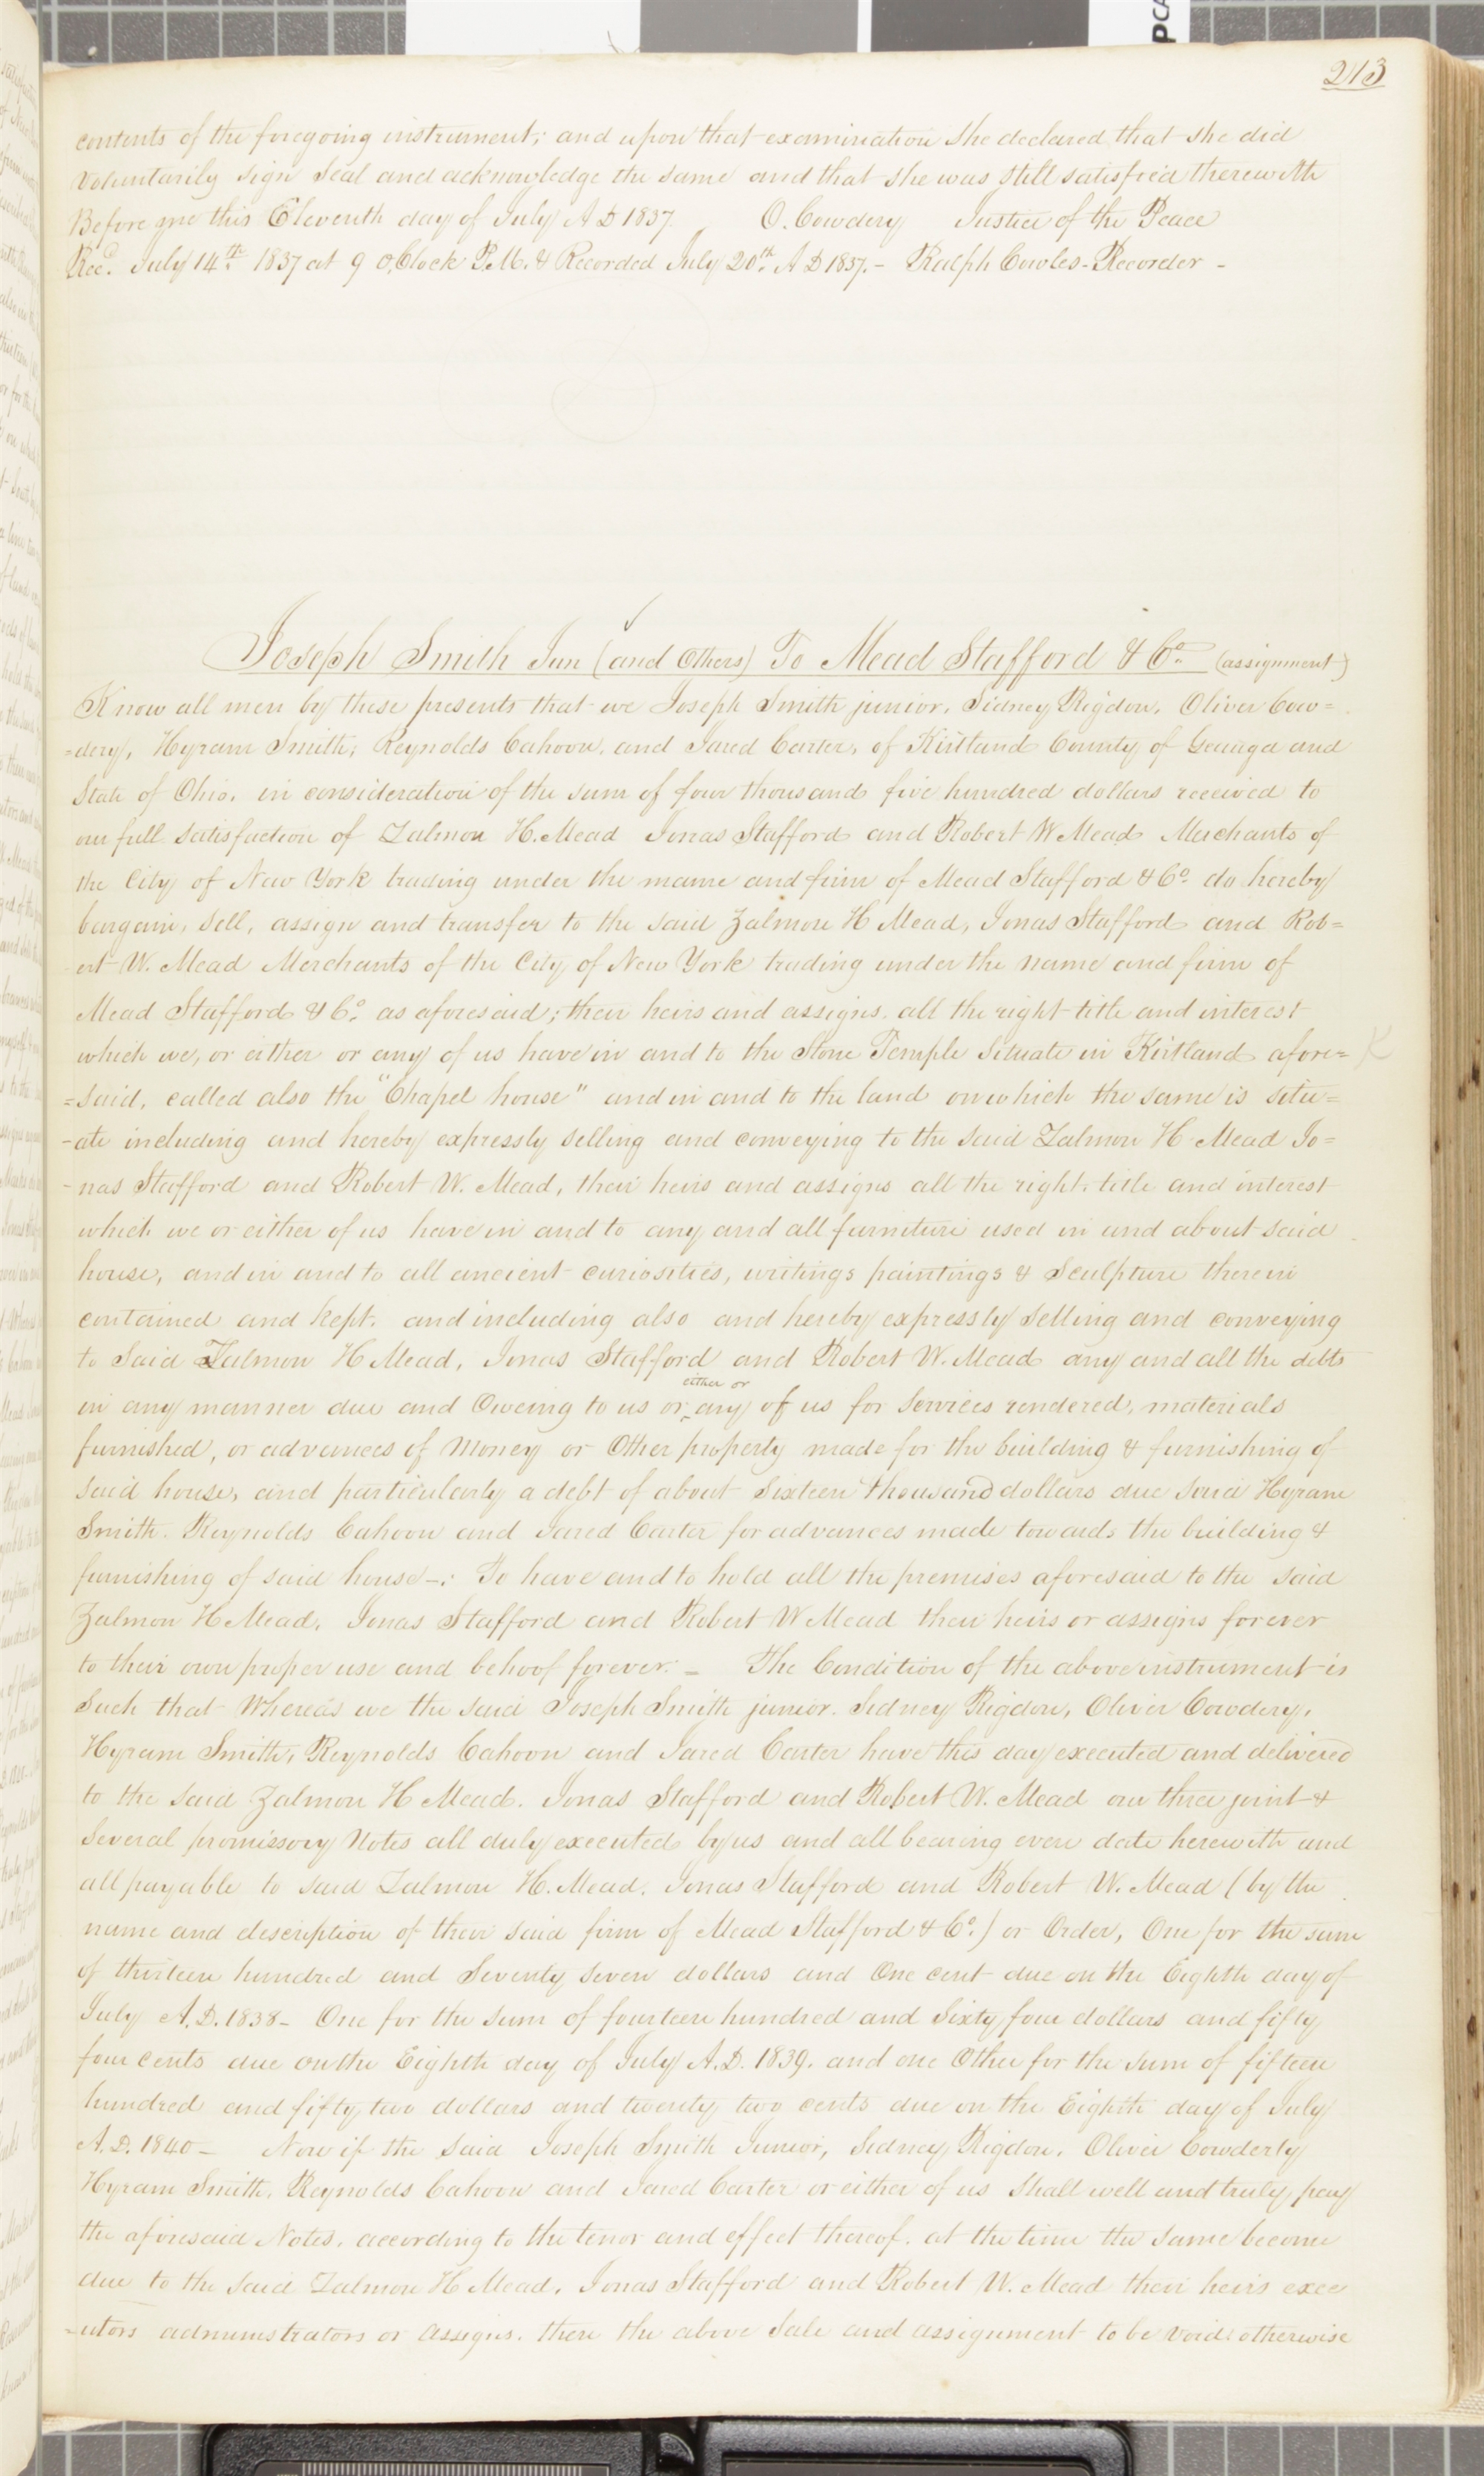 213
contents of the foregoing instrument; and upon that examination she declared that she did
voluntarily sign seal and acknowledge the same and that she was still satisfied therewith
Before me this Eleventh day of July A D 1837. O. Cowdery Justice of the Peace
Recd. July 14th. 1837 at 9 o,Clock P.M. & Recorded July 20th. A D 1837.- Ralph Cowles- Recorder -
Joseph Smith Jun (and Others) To Mead Stafford & Co. (assignment)
Know all men by these presents that we Joseph Smith junior, Sidney Rigdon, Oliver Cow=
=dery, Hyram Smith, Reynolds Cahoon, and Jared Carter, of Kirtland County of Geauga and
State of Ohio, in consideration of the sum of four thousand five hundred dollars received to
our full satisfaction of Zalmon H. Mead Jonas Stafford and Robert W Mead Merchants of
the City of New York trading under the name and firm of Mead Stafford & Co. do hereby
bargain, sell, assign and transfer to the said Zalmon H Mead, Jonas Stafford and Rob=
ert W. Mead Merchants of the City of New York trading under the name and firm of
Mead Stafford & Co. as aforesaid; their heirs and assigns, all the right title and interest
which we, or either or any of us have in and to the Stone Temple situate in Kirtland afore=
=said, called also the "Chapel house" and in and to the land on which the same is situ=
-ate including and hereby expressly selling and conveying to the said Zalmon H Mead Jo=
-nas Stafford and Robert W. Mead, their heirs and assigns all the right, title and interest
which we or either of us have in and to any and all furniture used in and about said
house, and in and to all ancient curiosities, writings paintings & Sculpture therein
contained and kept, and including also and hereby expressly selling and conveying
to Said Zalmon H Mead, Jonas Stafford and Robert W. Mead any and all the debts
in any manner due and Oweing to us or either or any of us for services rendered, materials
furnished, or advances of Money or Other property made for the building & furnishing of
said house, and particularly a debt of about Sixteen thousand dollars due said Hyram
Smith. Reynolds Cahoon and Jared Carter for advances made towards the building &
furnishing of said house-: To have and to hold all the premises aforesaid to the said
Zalmon H Mead, Jonas Stafford and Robert W Mead their heirs or assigns forever
to their own proper use and behoof forever. - The Condition of the above instrument is
Such that Whereas we the said Joseph Smith junior. Sidney Rigdon, Oliver Cowdery,
Hyram Smith, Reynolds Cahoon and Jared Carter have this day executed and delivered
to the said Zalmon H Mead. Jonas Stafford and Robert W. Mead our three joint &
Several promissory Notes all duly executed by us and all bearing even date herewith and
all payable to said Zalmon H. Mead. Jonas Stafford and Robert W. Mead (by the
name and description of their said firm of Mead Stafford & Co.) or Order, One for the sum
of thirteen hundred and Seventy seven dollars and One cent due on the Eighth day of
July A.D. 1838- One for the sum of fourteen hundred and Sixty four dollars and fifty
four cents due on the Eighth day of July A.D. 1839. and one Other for the sum of fifteen
hundred and fifty two dollars and twenty two cents due on the Eighth day of July
A.D. 1840- Now if the said Joseph Smith Junior, Sidney Rigdon, Oliver Cowderly
Hyram Smith, Reynolds Cahoon and Jared Carter or either of us shall well and truly pay
the aforesaid Notes, according to the tenor and effect thereof, at the time the same become
due to the said Zalmon H Mead, Jonas Stafford and Robert W. Mead their heirs exec
-utors administrators or assigns. then the above Sale and assignment to be void otherwise